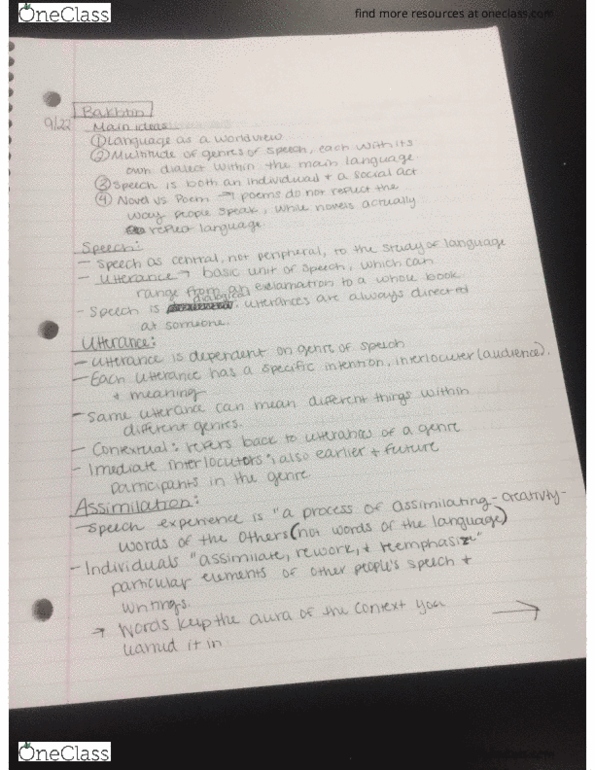 OneClass
find more resources at oneclass.com
Bakhtin
9/22
Main ideas:
① Language as a worldview
② Multitude of genres of speech, each with its
own dialect within the main language
③ Speech is both an individual + a social act
④ Novel vs Poem → poems do not reflect the
way people speak, while novels actually
reflect language
Speech:
- Speech as central, not peripheral, to the study of language
- Utterance → basic unit of speech, which can
range from an exlamation to a whole book
- Speech is dialogical: utterances are always directed
at someone.
Utterance:
- Utterance is dependent on genre of speech
- Each utterance has a specific intention, interlocuter (audience),
+ meaning
- Same utterance can mean different things within
different genres.
- Contextual: refers back to utterances of a genre
- Imediate interlocutors; also earlier + future
participants in the genre
Assimilation:
- Speech experience is "a process of assimilating - creativity -
words of the others (not words of the language)
- Individuals "assimilate, rework, + reemphasize"
particular elements of other people's speech +
writings.
→ Words keep the aura of the context you
learned it in →
OneClass